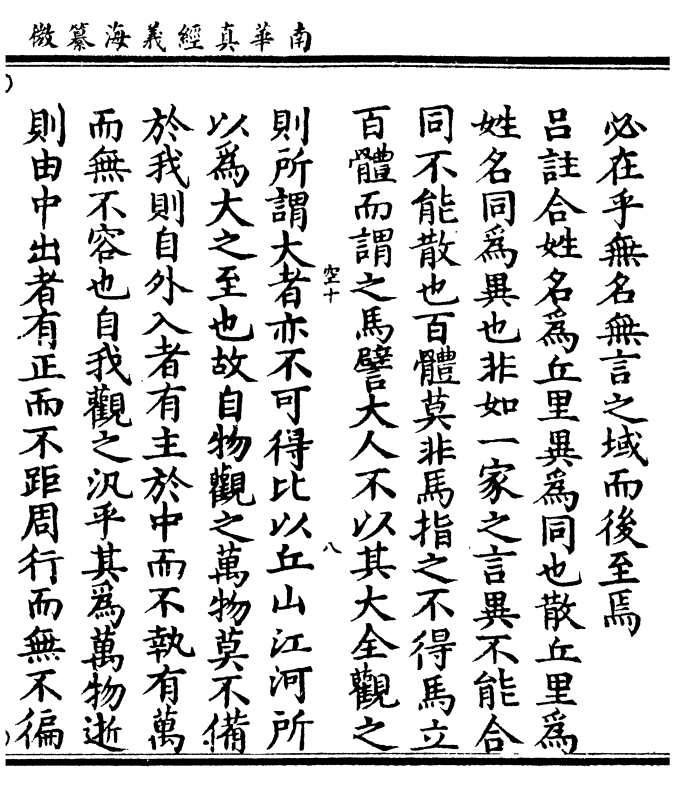 南華真經義海纂微
必在乎無名無言之域而後至焉
呂註合姓名為丘里異為同也散丘里為
姓名同為異也非如一家之言異不能合
同不能散也百體莫非馬指之不得馬立
百體而謂之馬譬大人不以其大全觀之
空十
八
則所謂大者亦不可得比以丘山江河所
以為大之至也故自物觀之萬物莫不備
於我則自外入者有主於中而不執有萬
而無不容也自我觀之汎乎其為萬物逝
則由中出者有正而不距周行而無不徧